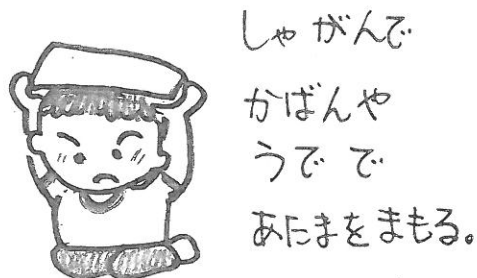 しゃがんで
かばんや
うでで
あにまをまもる。